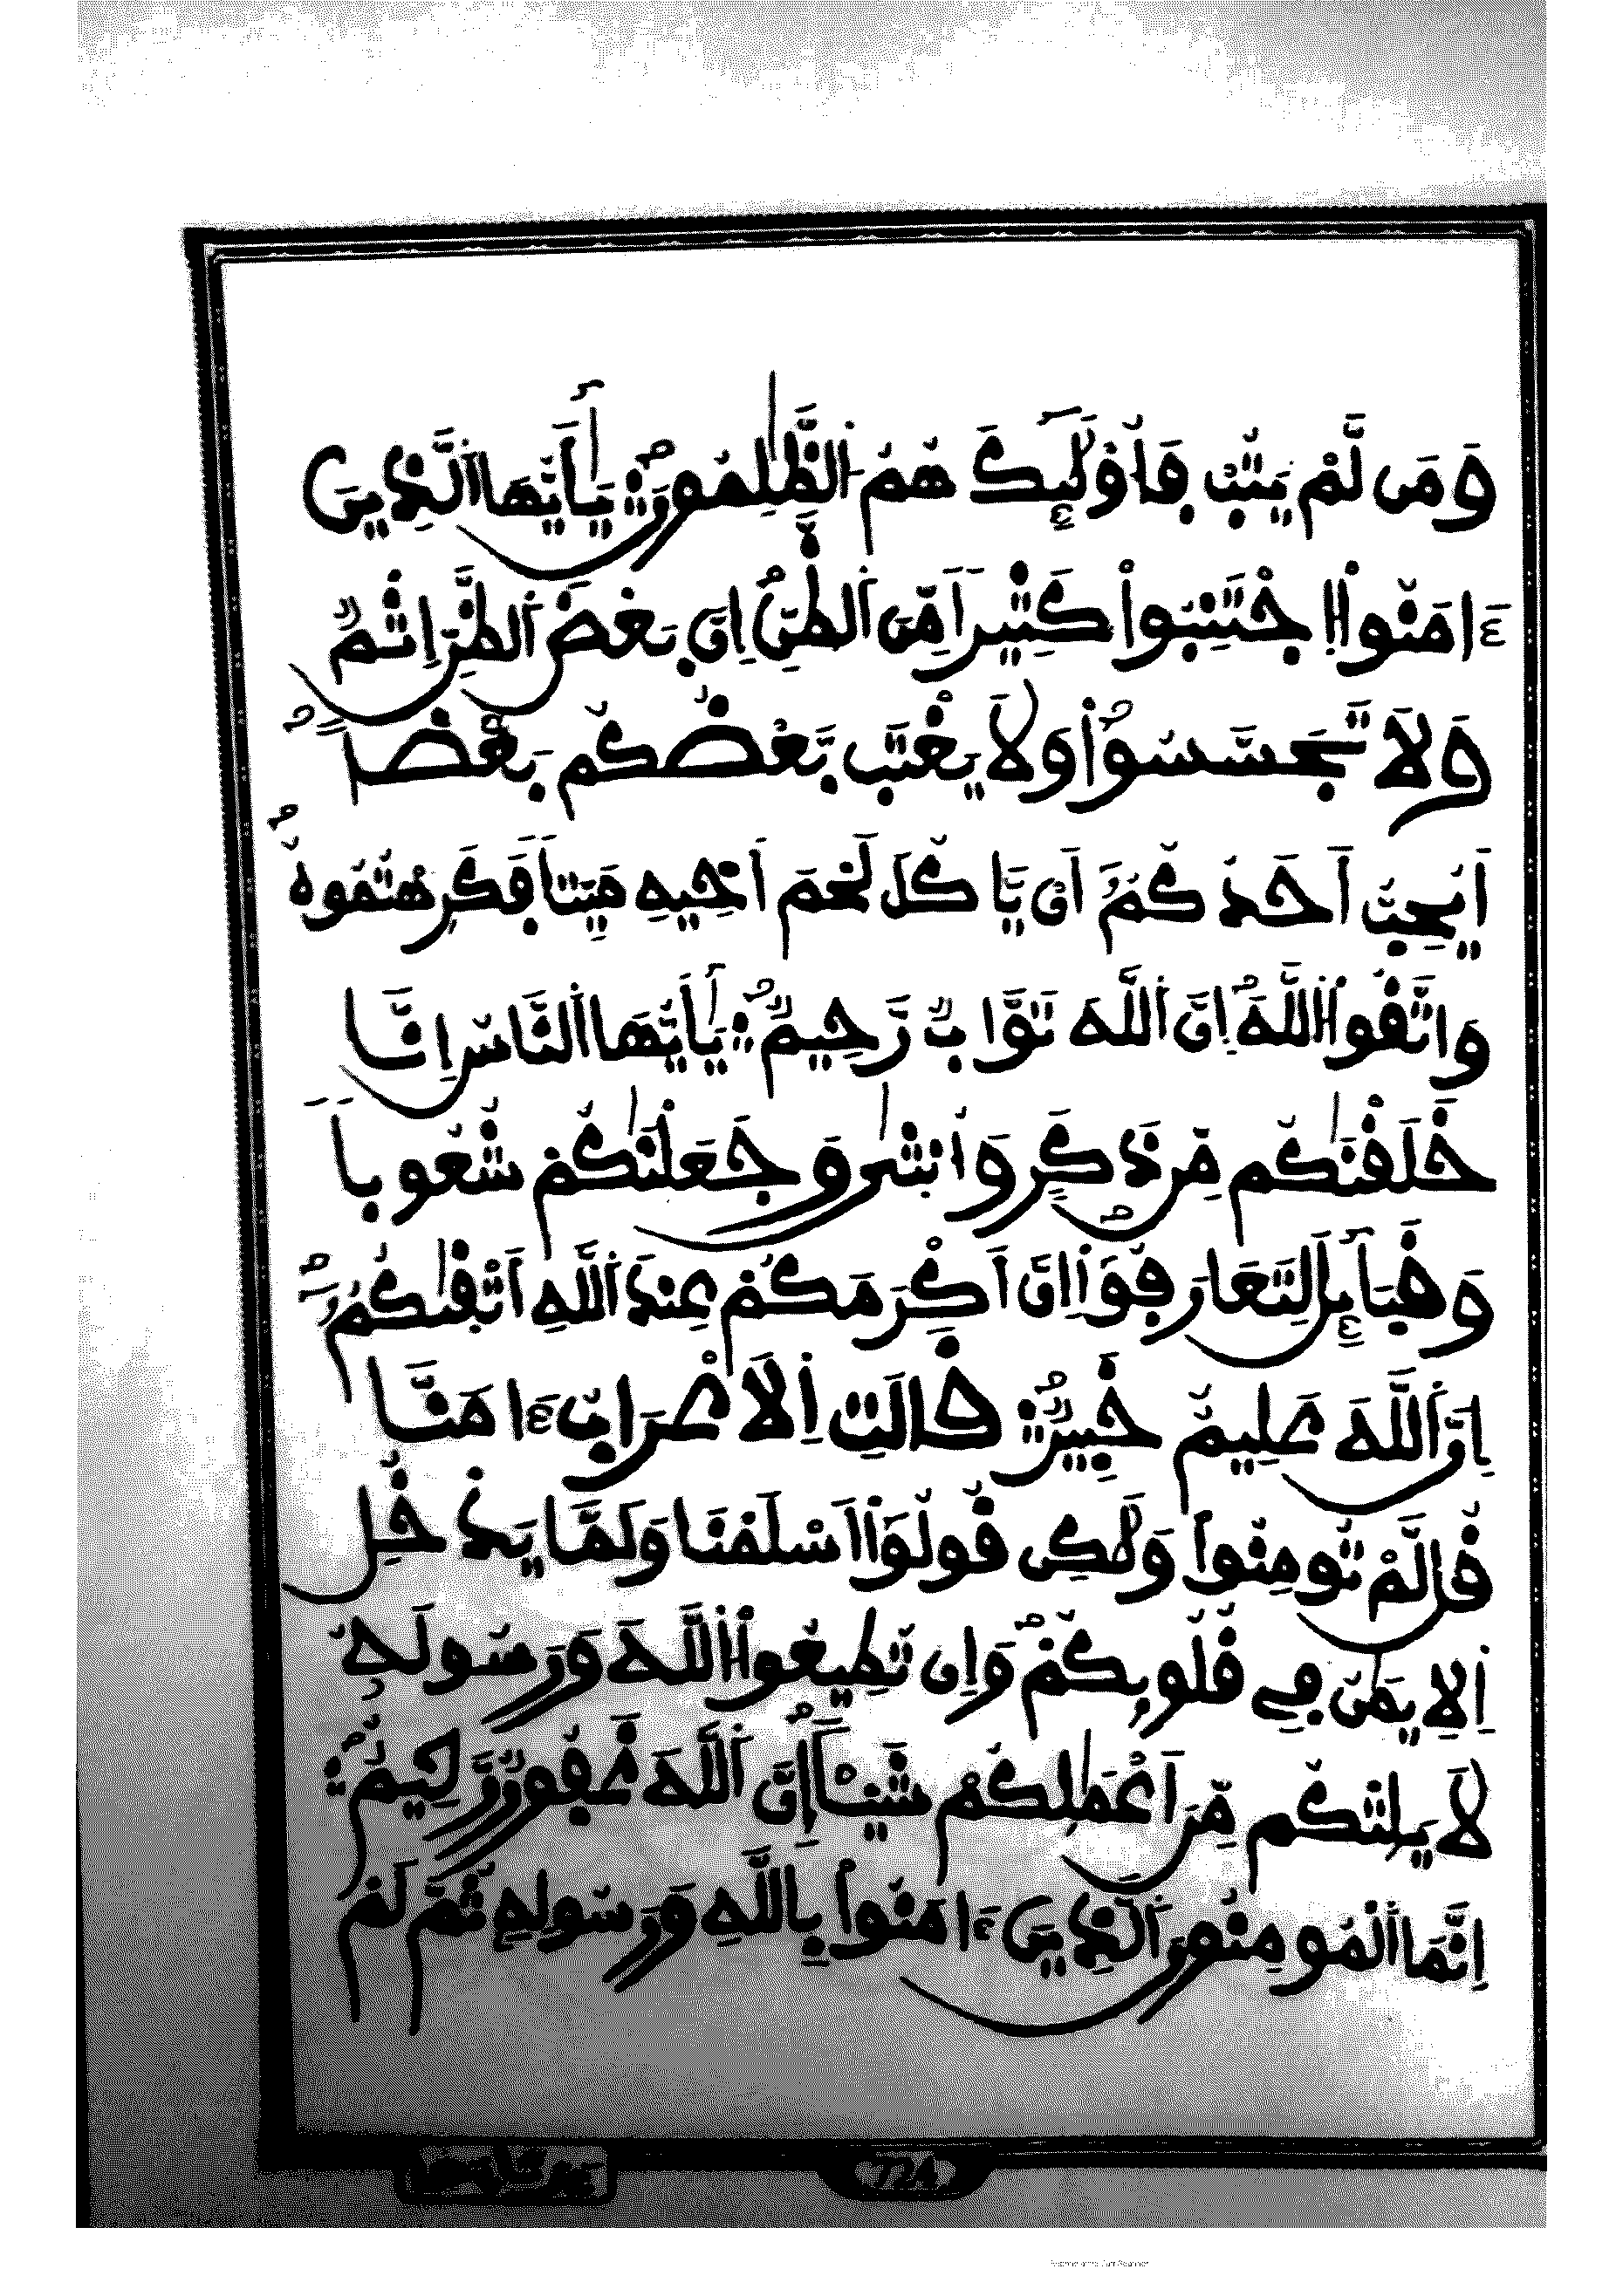 وَمَن لَّمْ يَتُبْ فَأُوْلَٰٓئِكَ هُمُ ٱلظَّٰلِمُونَۖ يَٰٓأَيُّهَا ٱلَّذِينَ
ءَامَنُوا۟ ٱجْتَنِبُوا۟ كَثِيراً مِّنَ ٱلظَّنِّ إِنَّ بَعْضَ ٱلظَّنِّ إِثْمٌ
وَلَا تَجَسَّسُوا۟ وَلَا يَغْتَب بَّعْضُكُم بَعْضاً
اَيُحِبُّ أَحَدُكُمُۥٓ أَنْ يَّاكُلَ لَحْمَ أَخِيهِ مَيِّتاً فَكَرِهْتُمُوهُ
وَاتَّقُوا۟ ٱللَّهَ إِنَّ ٱللَّهَ تَوَّابٌ رَّحِيمٌۖ يَٰٓأَيُّهَا ٱلنَّاسُ إِنَّا
خَلَقْنَٰكُم مِّن ذَكَرٍ وَأُنثَىٰ وَجَعَلْنَٰكُمْ شُعُوباً
وَقَبَآئِلَ لِتَعَارَفُوٓا۟ إِنَّ أَكْرَمَكُمْ عِندَ ٱللَّهِ أَتْقَىٰكُمُۥٓ
إِنَّ ٱللَّهَ عَلِيمٌ خَبِيرٌۖ قَالَتِ ٱلَاعْرَابُ ءَامَنَّا
قُل لَّمْ تُومِنُوا۟ وَلَٰكِن قُولُوٓا۟ أَسْلَمْنَا وَلَمَّا يَدْخُلِ
ٱلِايمَٰنُ فِے قُلُوبِكُمْ وَإِن تُطِيعُوا۟ ٱللَّهَ وَرَسُولَهُۥ
لَا يَلِتْكُم مِّنَ اَعْمَٰلِكُمْ شَيْـًٔا إِنَّ ٱللَّهَ غَفُورٌ رَّحِيمٌۖ
إِنَّمَا ٱلْمُومِنُونَ ٱلَّذِينَ ءَامَنُوا۟ بِاللَّهِ وَرَسُولِهِۦ ثُمَّ لَمْ
724